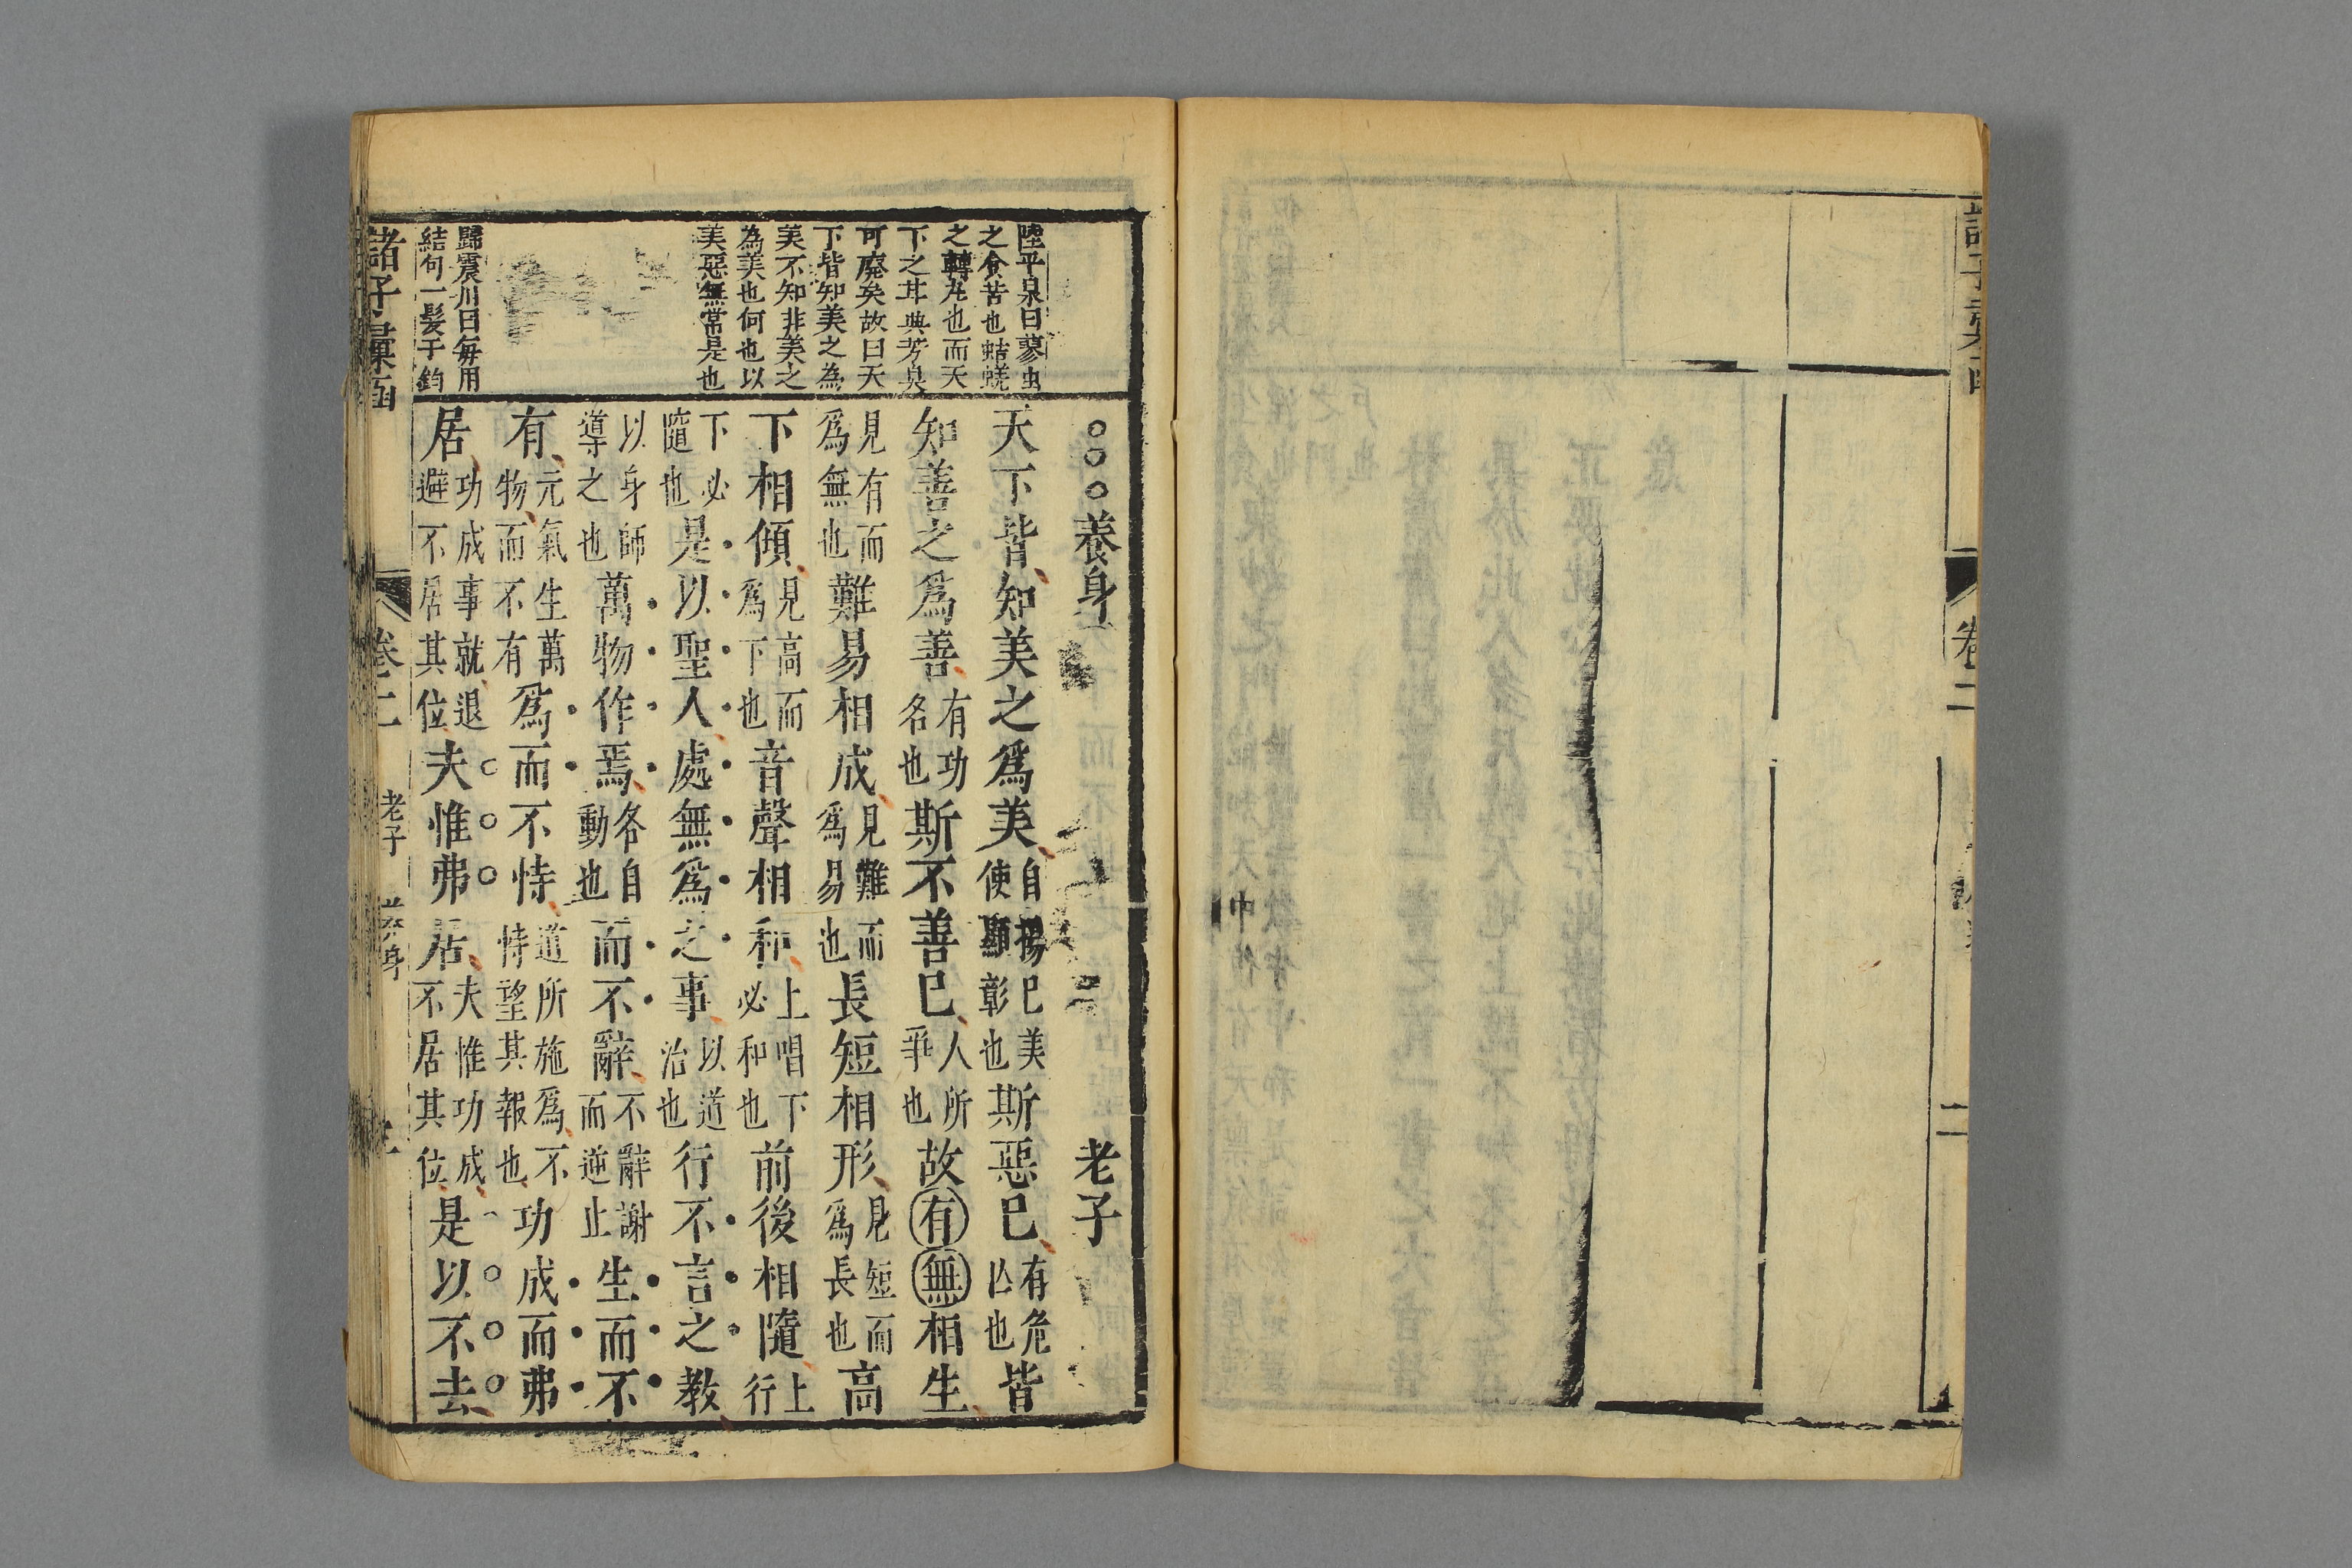 卷二
二
陸平泉曰蓼虫
之食苦也蛣蜣
之轉丸也而天
下之耳典芳臭
可廢矣故曰天
下皆知美之為
美不知非美之
為美也何也以
美惡無常是也
歸震川曰每用
結句一髮千鈞
○○○養身 老子
天下皆知美之爲美自揚已美使顯彰也斯惡已有危亾也皆
知善之爲善有功名也斯不善已人所爭也故有無相生
見有而爲無也難易相成見難而爲易也長短相形見短而爲長也高
下相傾見高而爲下也音聲相和上唱下必和也前後相隨上行
下必隨也是以聖人處無爲之事以道治也行不言之教
以身師導之也萬物作焉各自動也而不辭不辭謝而逆止生而不
有元氣生萬物而不有爲而不恃道所施爲不恃望其報也功成而弗
居功成事就退避不居其位夫惟弗居夫惟功成不居其位是以不去
諸子彙函 卷二 老子 養身